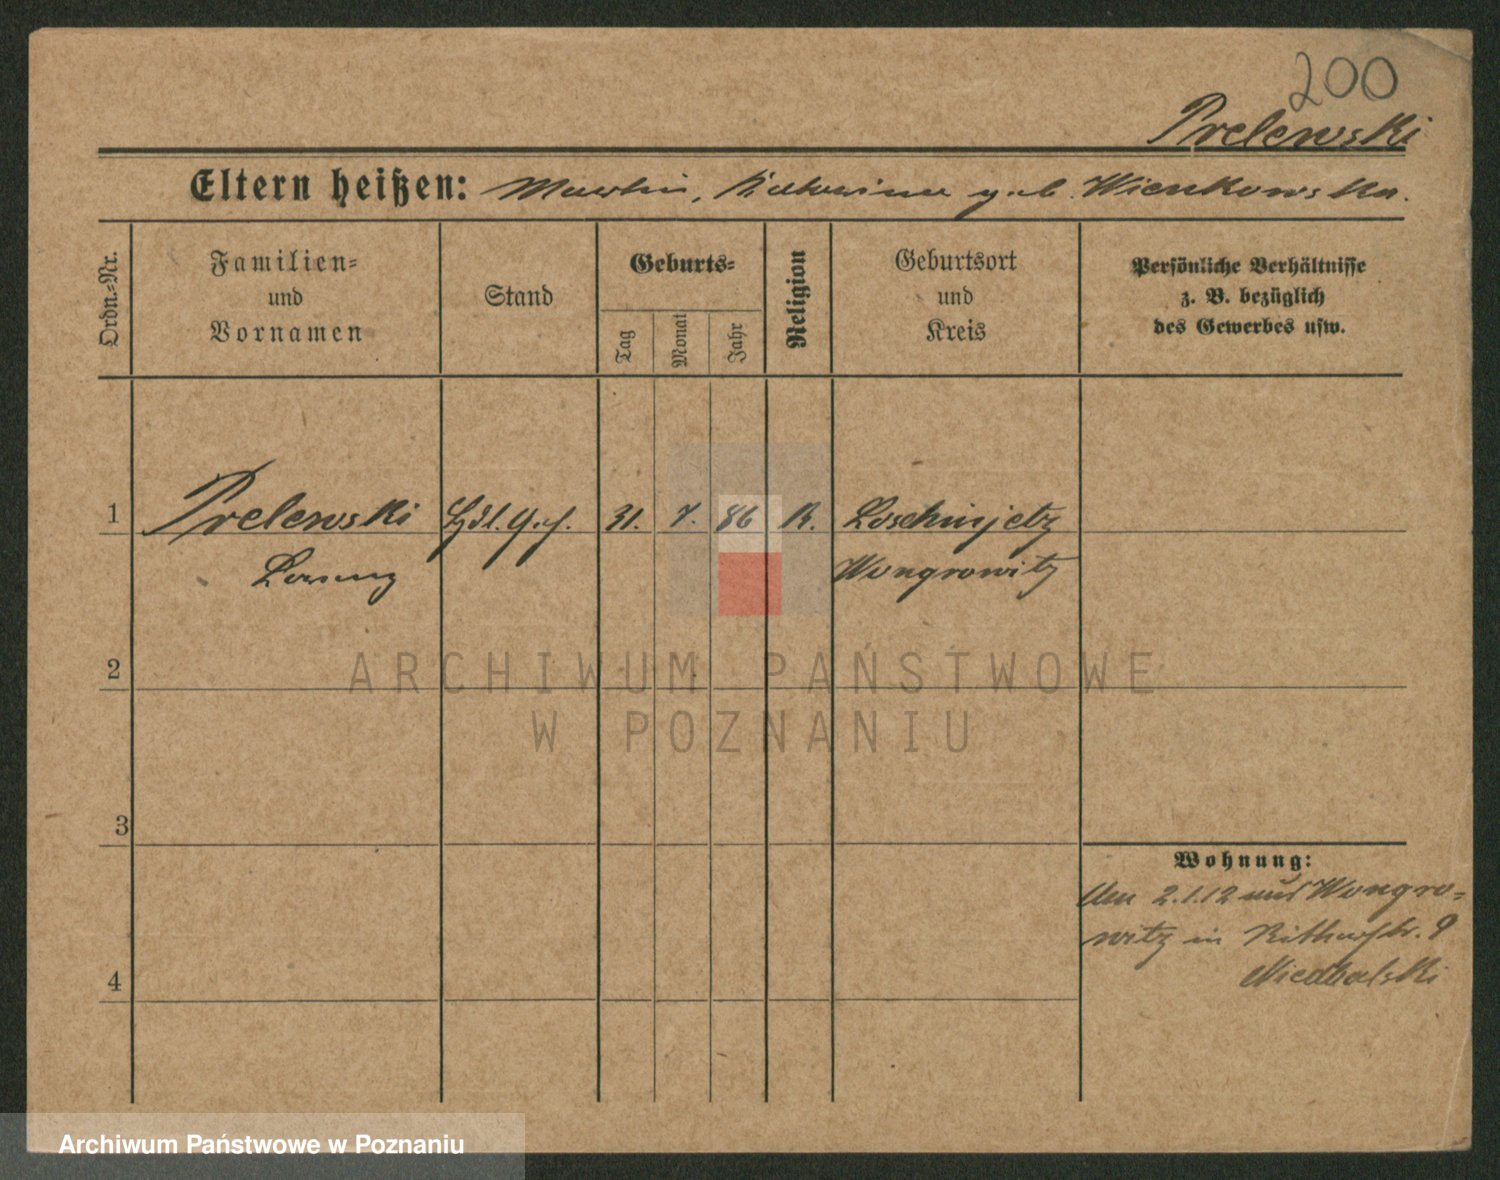 200
Prelewski
Eltern heißen: Martin, Katharina geb. Wienkowska.
Ordn.-Nr.
Familien-
und
Vornamen
Stand
Geburts-
Tag
Monat
Jahr
Religion
Geburtsort
und
Kreis
Persönliche Verhältnisse
z. B. bezüglich
des Gewerbes usw.
1
Prelewski
Hdl. Geh.
31.
7.
86
K.
Loschinjetz
Lorenz
Wongrowitz
2
ARCHIWUM PAŃSTWOWE
W POZNANIU
3
Wohnung:
2.1.12 aus Wongro-
witz in Ritterstr. 9
4
Niedbalski
Archiwum Państwowe w Poznaniu